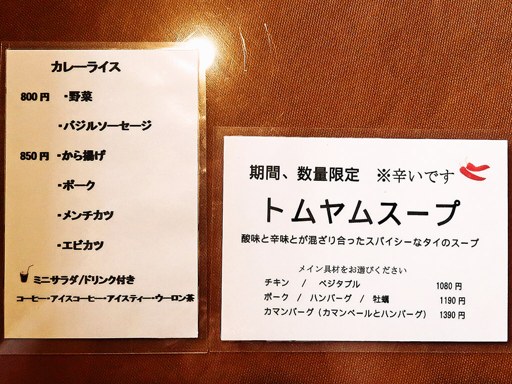 カレーライス
800円 ・野菜
・バジルソーセージ
850円 ・から揚げ
・ポーク
・メンチカツ
・エビカツ
ミニサラダ/ドリンク付き
コーヒー・アイスコーヒー・アイスティー・ウーロン茶
期間、数量限定 ※辛いです
トムヤムスープ
酸味と辛味とが混ざり合ったスパイシーなタイのスープ
メイン具材をお選びください
チキン / ベジタブル 1080円
ポーク / ハンバーグ / 牡蠣 1190円
カマンバーグ(カマンベールとハンバーグ) 1390円